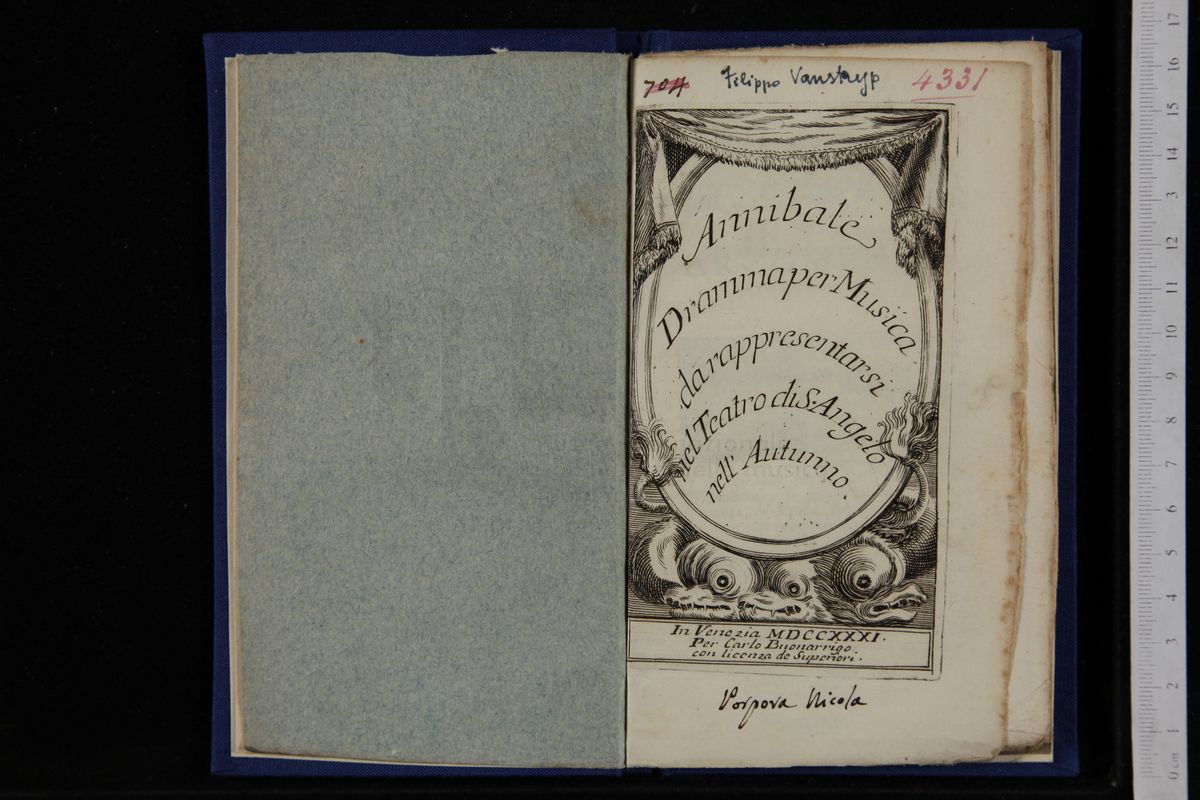 704 Filippo Vanstryp 4331
Annibale
Dramma per Musica
da rappresentarsi
nel Teatro di S. Angelo
nell' Autunno.
In Venezia MDCCXXXI.
Per Carlo Buonarrigo.
con licenza de Superiori.
Porpora Nicola
17
16
15
14
13
12
11
10
9
8
7
6
5
4
3
2
1
0 cm